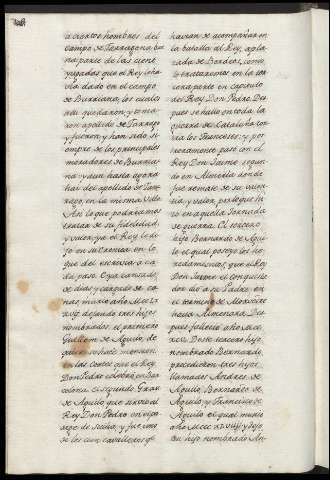 a ciertos hombres del
campo de Tarragona bue
na parte de las ciene
yugadas que el Rey le ha
via dado en el campo
de Burriana, los cuales
alli quedaron, y toma
ron apellido de Tarrago
y fueron y han sido si
empre de los principales
moradores de Burria
na y aun hasta agora
hai del apellido de Tar
rago, en la misma Villa
Assi lo que podriamos
tratar de su fidelidad,
y valor, ya el Rey lo de
jo en su Cronica en lo
que del escrivia a ca
da paso. El ya cansado
de dias y cargado de co
ronas, murio año MCCLX
XVIJ dejando tres hijos
nombrados, el primero
Guillem de Aguilo, de
quien se hace mencion
en las cortes que el Rey
Don Pedro celebro en Bar
celona, el segundo Grau
de Aguilo que sirvio al
Rey Don Pedro en el pa
sage de Sicilia, y fue uno
de los cien cavalleros qe
havian de acompañar en
la batalla al Rey, apla
cada de Bordeos, como
lo trataremos en la ter
cera parte en capitulo
del Rey Don Pedro. Des
pues se hallo en toda la
guerra de Cataluña con
tra los Franceses: y pos
treramente paso con el
Rey Don Jaime segun
do en Almeria donde
fue remate de su valen
tia, y valor, porque hi
zo en aquella Jornada
de guerra. El tercero
hijo Bernardo de Agui
lo el qual poseyo los he
redamientos, que el Rey
Don Jaime el conquista
dor dio a su Padre en
el termino de Morviedre
hacia Almenara. Des
pues fallecio año MCC
XCIJ. Deste tercero hijo
nombrado Bernardo
procedieron tres hijos
llamados Andres de
Aguilo, Bernardo de
Aguilo y Francisco de
Aguilo el qual murio
año MCCCXLVIIJ y dejo
un hijo nombrado An-